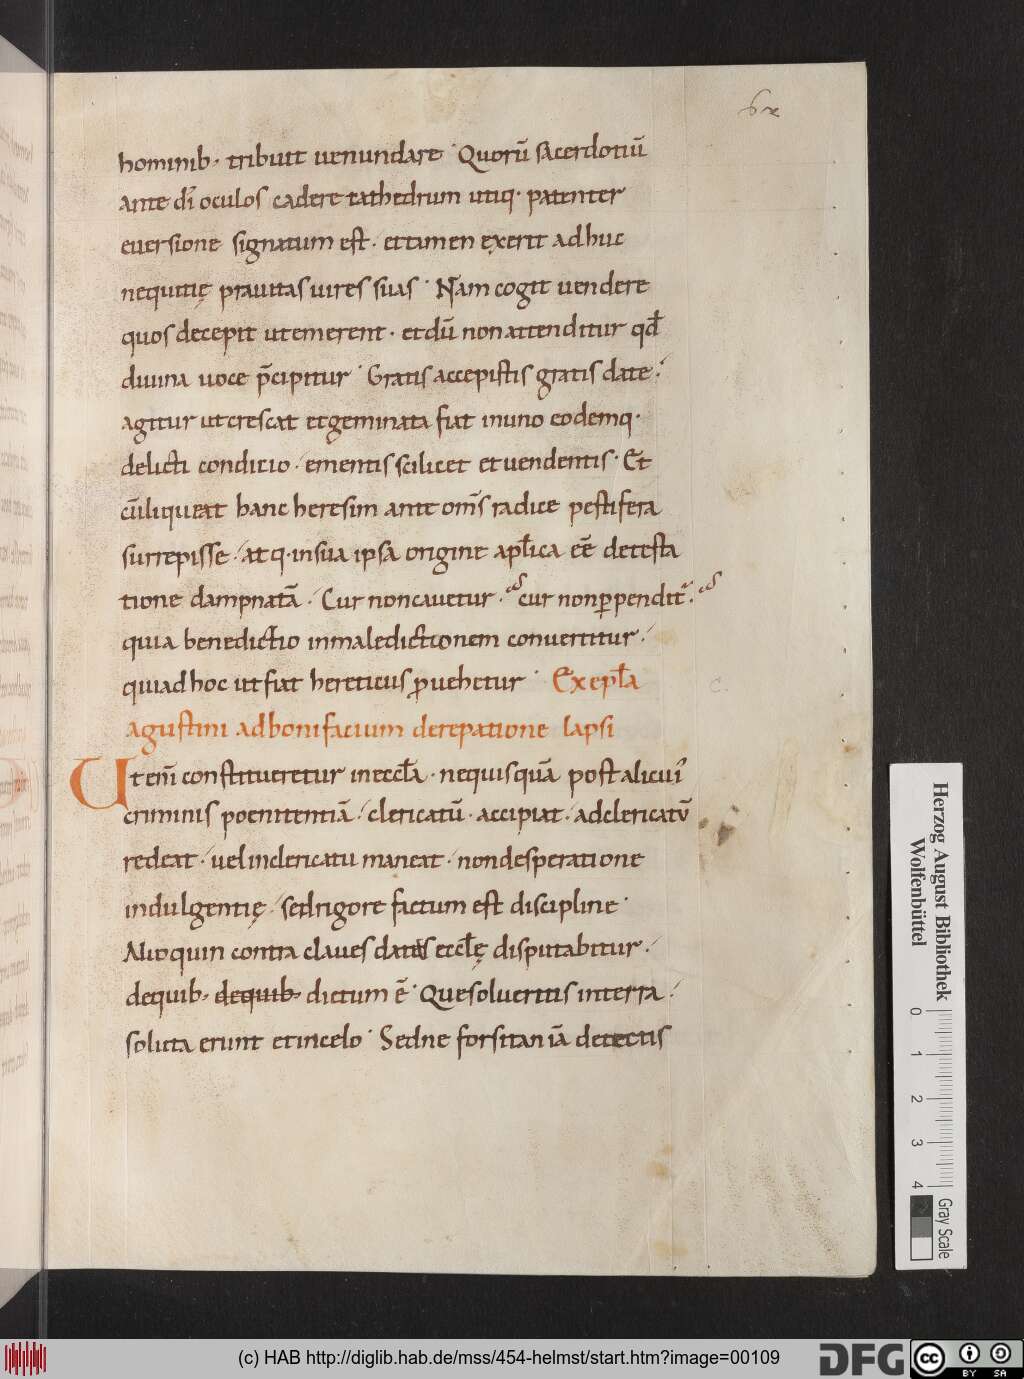 62
hominib· tribuit uenundare · Quorū sacerdotiū
ante dī oculos cadere cathedrum utiq· patenter
euersione signatum est · et tamen exerit adhuc
nequitię prauitas uires suas · Nam cogit uendere
quos decepit ut emerent · et dū non attenditur qđ
diuina uoce p̄cipitur · Gratis accepistis gratis date ·
agitur ut crescat et geminata fiat in uno eodemq·
delicti condicio · ementis scilicet et uendentis · Et
cū liqueat hanc heresim ante om̄s radice pestifera
surrepisse · atq· in sua ipsa origine apl̄ica eē detesta
tione dampnatā · Cur non cauetur · cur non ꝑpenditr̄ ·
quia benedictio in maledictionem conuertitur ·
qui ad hoc ut fiat hereticus ꝓuehetur · Ex epl̄a
Agustini ad bonifacium de repatione lapsi
Ut enī constitueretur in eccl̄a · ne quisquā post alicuī
criminis poenitentiā · clericatū · accipiat · ad clericatū
redeat · uel in clericatu maneat · non desperatione
indulgentię · sed rigore factum est discipline ·
Alioquin contra claues datas eccl̄ę disputabitur ·
de quib· de quib· dictum ē · Que solueritis in terra ·
soluta erunt et in celo · Sed ne forsitan iā detectis
Herzog August Bibliothek
Wolfenbüttel
0 1 2 3 4
Gray Scale
(c) HAB http://diglib.hab.de/mss/454-helmst/start.htm?image=00109
DFG
cc BY SA